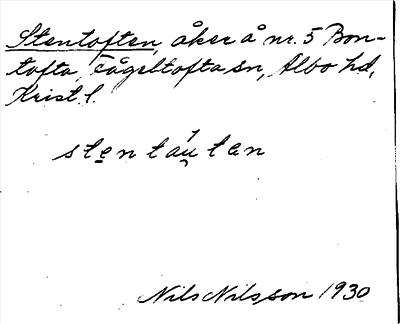 Stentoften, åker å nr. 5 Bon-
tofta, Fågeltofta sn, Albo hd,
Krist l.
stentáu̯tan
Nils Nilsson 1930